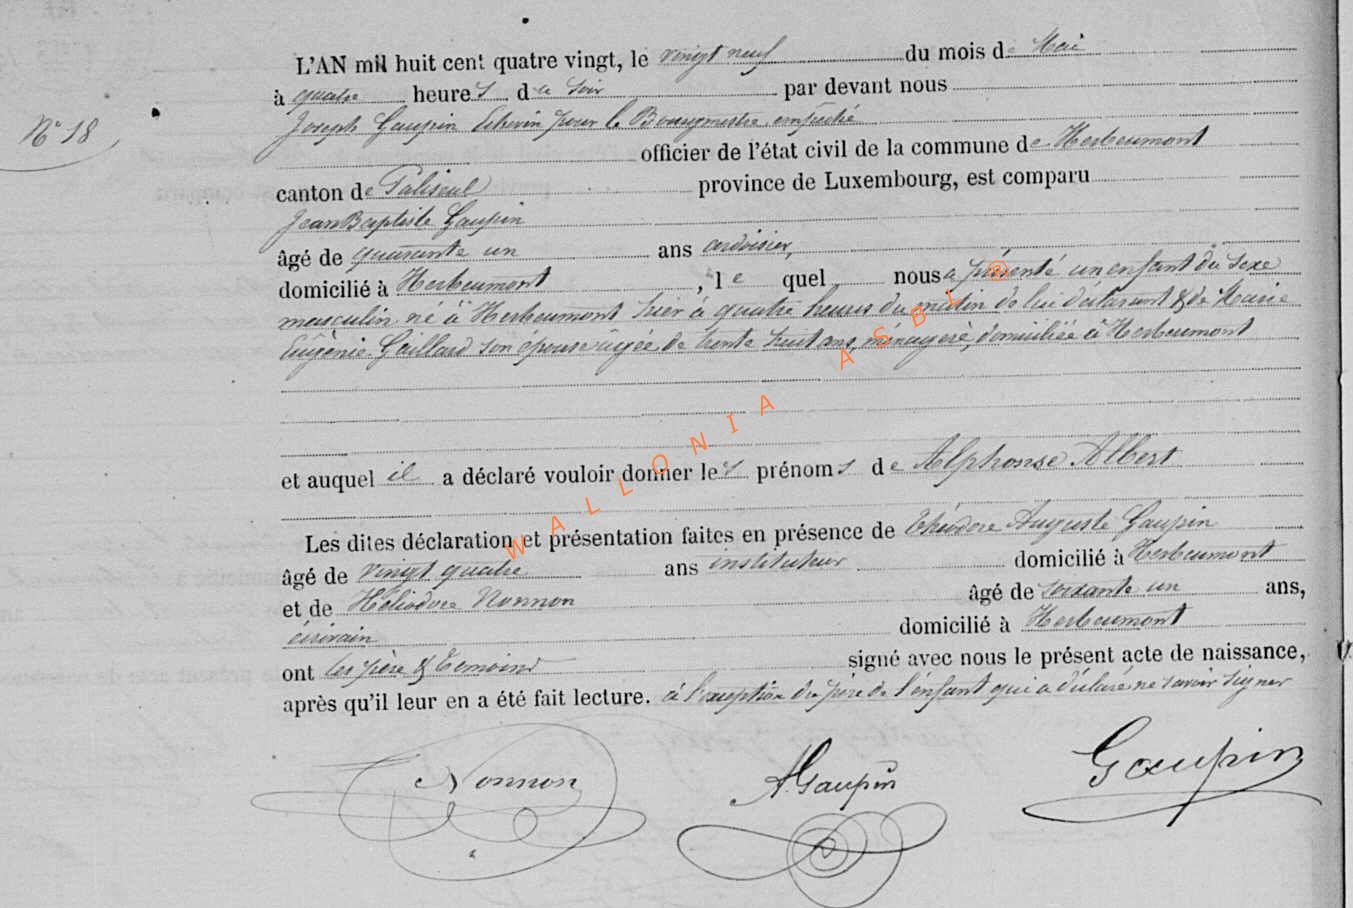 L'AN mil huit cent quatre vingt, le vingt neuf du mois de Mai
à quatre heures du soir par devant nous
N° 18
Joseph Gaupin Echevin pour le Bourgmestre empêché
officier de l'état civil de la commune de Herbeumont
canton de Paliseul province de Luxembourg, est comparu
Jean Baptiste Gaupin
âgé de quarante un ans ardoisier,
domicilié à Herbeumont, le quel nous a présenté un enfant du sexe
masculin né à Herbeumont hier à quatre heures du matin de lui déclarant & de Marie
Eugènie Gaillard son épouse âgée de trente huit ans, ménagère, domiciliée à Herbeumont
et auquel il a déclaré vouloir donner les prénoms de Alphonse Albert
Les dites déclaration et présentation faites en présence de Théodore Auguste Gaupin
âgé de vingt quatre ans instituteur domicilié à Herbeumont
et de Héliodore Nonnon âgé de soixante un ans,
écrivain domicilié à Herbeumont
ont les père & témoins signé avec nous le présent acte de naissance,
après qu'il leur en a été fait lecture. à l'exception du père de l'enfant qui a déclaré ne savoir signer
Nonnon A Gaupin Gaupin
WALLONIA ASBL ®